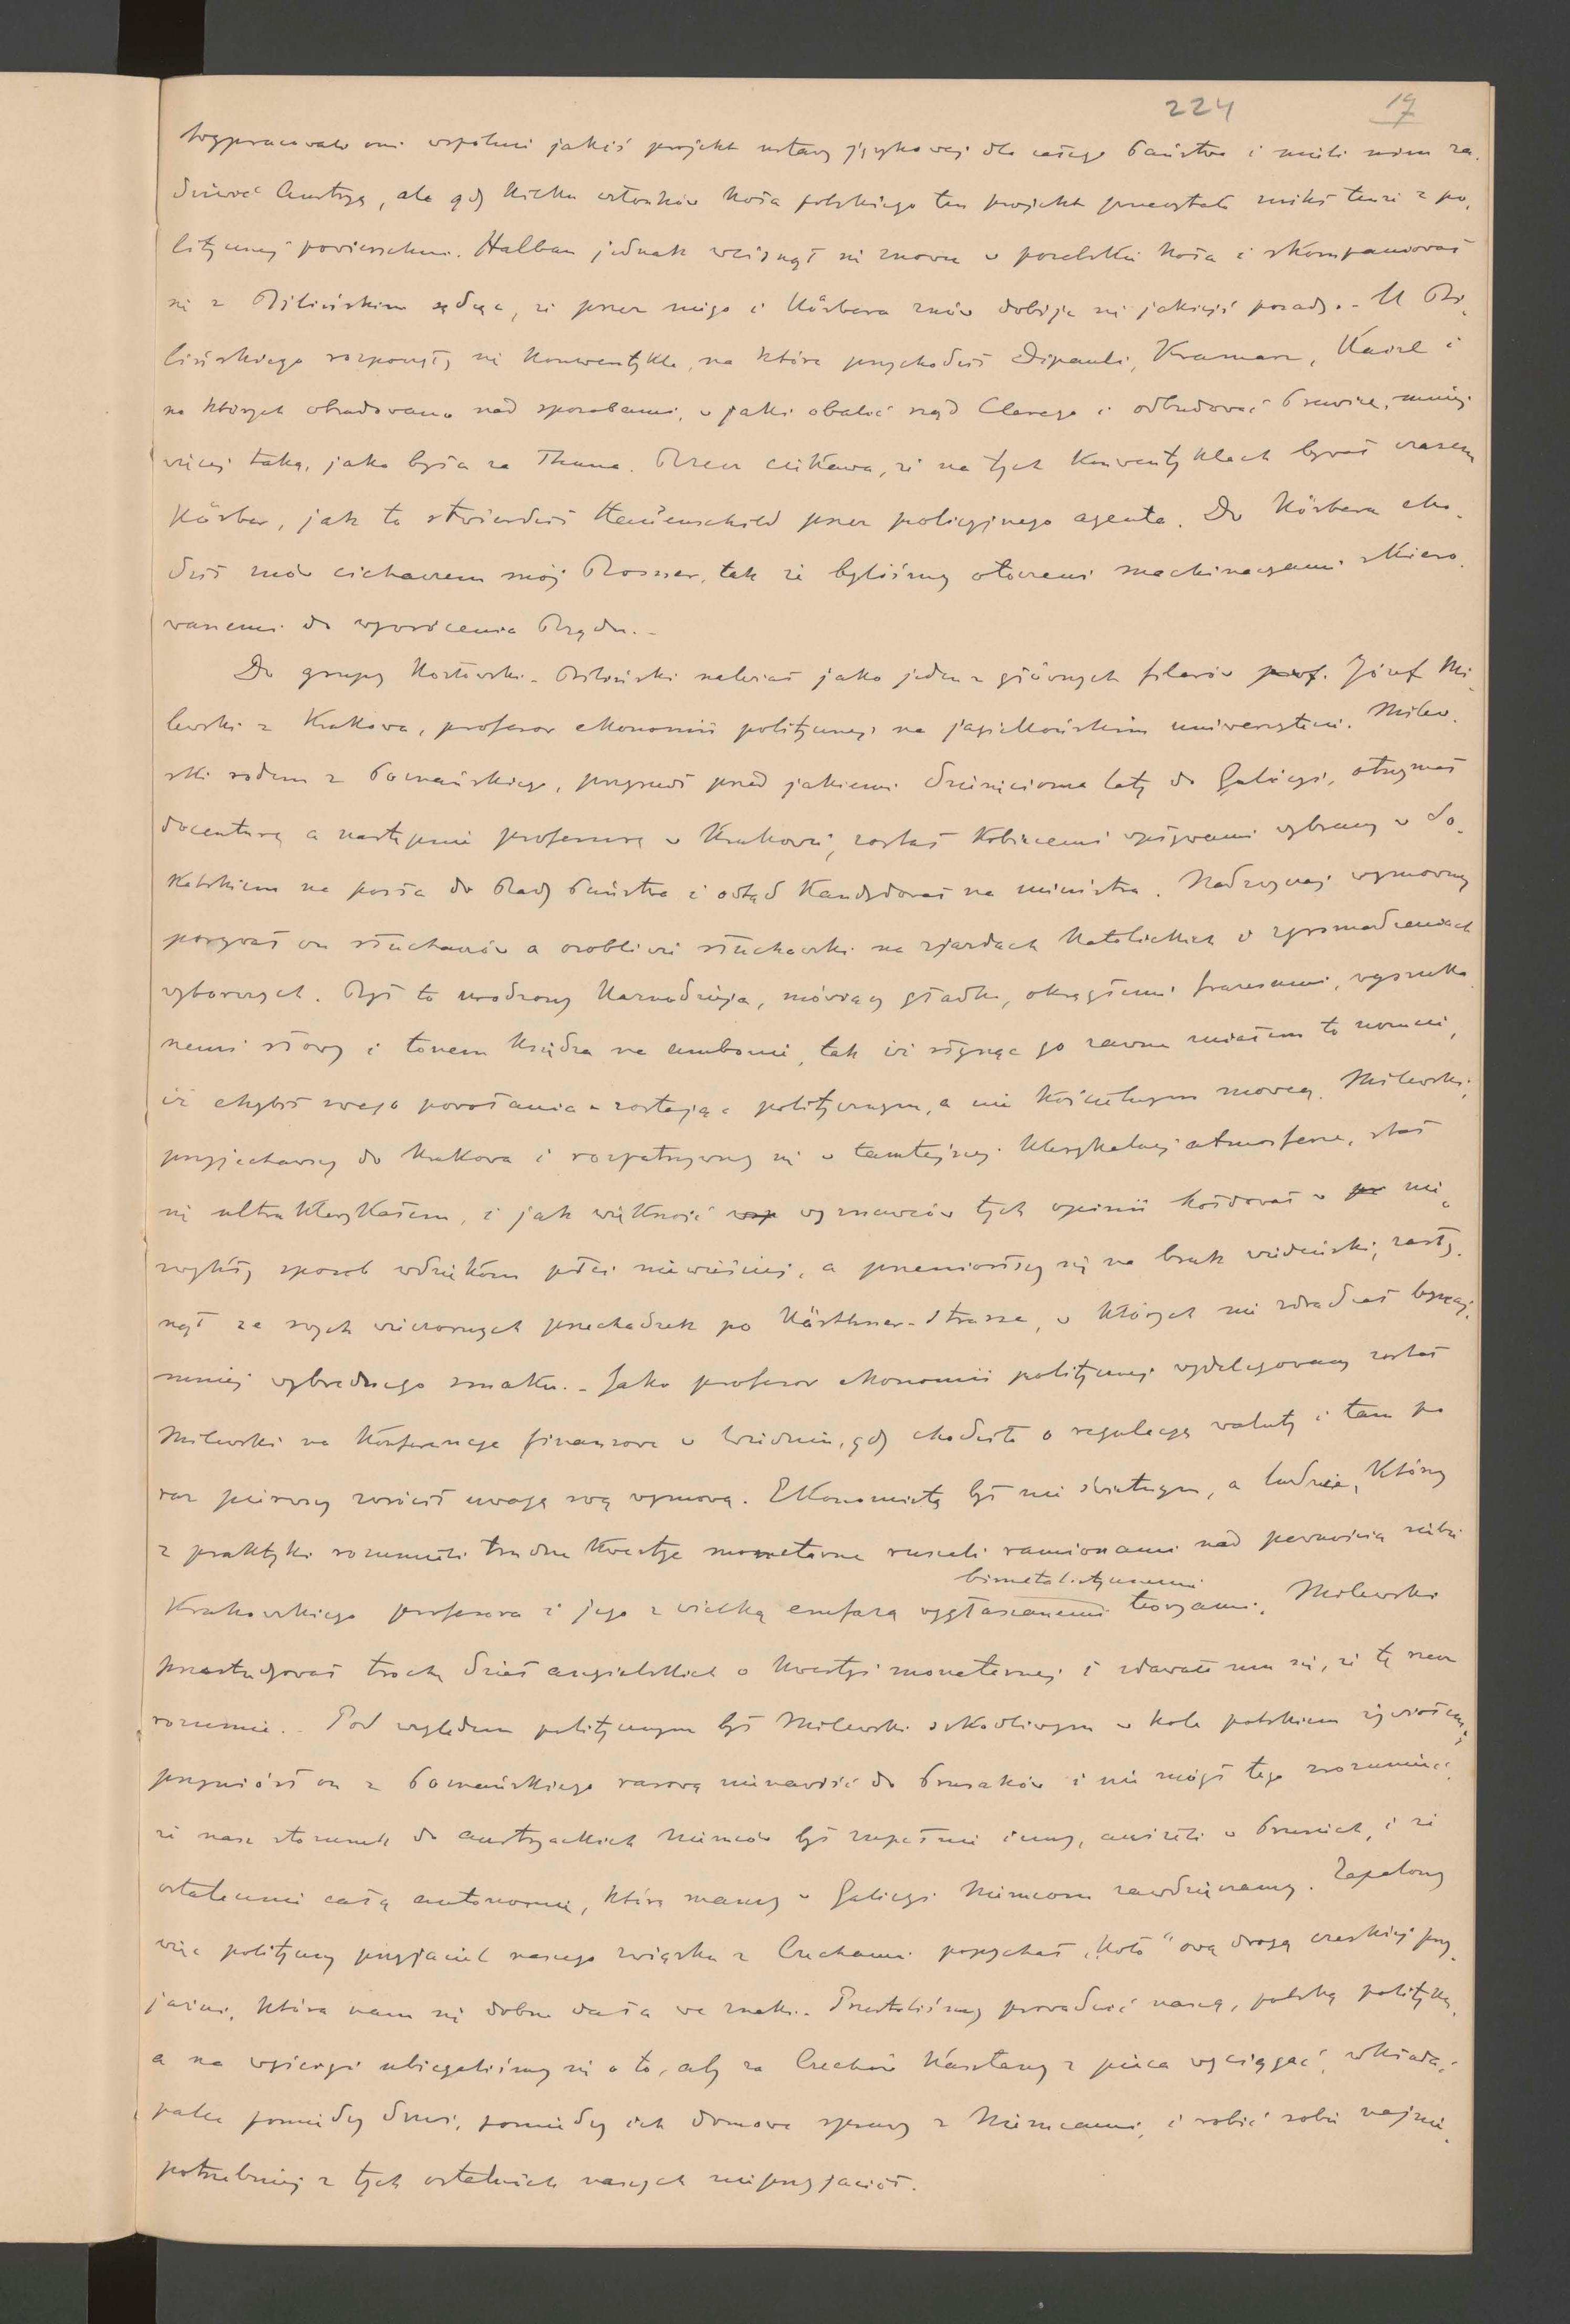 224 17
Wypracowali oni wspólnie jakiś projekt ustawy językowej dla całego Państwa i mieli nim za-
dziwić Austryę, ale gdy kilku członków Koła polskiego ten projekt przeczytało znikł tenże z po-
litycznej powierzchni. Halban jednak wcisnął się znowu w pobliże Koła i skompanował
się z Bilińskim sądząc, że przez niego i Körbera znów dobije się jakiejś posady. - U Bi-
lińskiego rozpoczęły się konwentykle, na które przychodził Dipauli, Kramarz, Kaizl i
na których obradowano nad sposobami, w jaki obalić rząd Clarego i odbudować Prawicę, mniej
więcej taką, jaka była za Thuna. Rzecz ciekawa, że na tych konwentyklach bywał czasem
Körber, jak to stwierdził przez policyjnego agenta. Do Körbera cho-
dził znów cichaczem mój Rosner, tak że byliśmy otoczeni machinacyami skiero-
wanemi do wywrócenia Rządu. -
Do grupy Kozłowski-Biliński należał jako jeden z głównych filarów prof. Józef Mi-
lewski z Krakowa, profesor ekonomii politycznej na jagiellońskim uniwersytecie. Milew-
ski rodem z Poznańskiego, przyszedł przed jakiemi dziesięcioma laty do Galicyi, otrzymał
docenturę a następnie profesurę w Krakowie, został kobiecemi wpływami wybrany w So-
kalskiem na posła do Rady Państwa i odtąd kandydował na ministra. Nadzwyczaj wymowny
porywał on słuchaczów a osobliwie słuchaczki na zjazdach katolickich i zgromadzeniach
wyborczych. Był to urodzony kaznodzieja, mówiący gładko, okrągłemi frazesami, wyszuka-
nemi słowy i tonem księdza na ambonie, tak iż słysząc go zawsze miałem to uczucie,
iż chybił swego powołania zostając politycznym, a nie kościelnym mówcą. Milewski,
przyjechawszy do Krakowa i rozpatrzywszy się w tamtejszej klerykalnej atmosferze, stał
się ultra klerykałem, i jak większość wyznawców tych opinii hołdował w nie-
zwykły sposób wdziękom płci niewieściej, a przeniósłszy się na bruk wiedeński, zasły-
nął ze swych wieczornych przechadzek po Kärthner-Strasse, w których nie zdradzał bynaj-
mniej wybrednego smaku. - Jako profesor ekonomii politycznej wydelegowany został
Milewski na konferencye finansowe w Wiedniu, gdy chodziło o regulacyę waluty i tam po
raz pierwszy zwrócił uwagę swą wymową. Ekonomistą był nie świetnym, a ludzie, którzy
z praktyki rozumieli trudne kwestye monetarne ruszali ramionami nad pewnością siebie
bimetalistycznemi
Krakowskiego profesora i jego z wielką emfazą wygłaszanemi teoryami. Milewski
przestudyował trochę dzieł angielskich o kwestyi monetarnej i zdawało mu się, że tę rzecz
rozumie. - Pod względem politycznym był Milewski szkodliwym w kole polskiem żywiołem;
przyniósł on z Poznańskiego rasową nienawiść do Prusaków i nie mógł tego zrozumieć,
że nasz stosunek do austryackich Niemców był zupełnie inny, aniżeli w Prusiech, i że
ostatecznie całą autonomię, którą mamy w Galicyi Niemcom zawdzięczamy. Zapalony
więc polityczny przyjaciel naszego związku z Czechami popychał „Koło" ową drogą czeskiej przy-
jaźni, która nam się dobrze dała we znaki. Przestaliśmy prowadzić naszą, polską politykę,
a na wyścigi ubiegaliśmy się o to, aby za Czechów kasztany z pieca wyciągać, wkładać
palce pomiędzy drzwi, pomiędzy ich domowe sprawy z Niemcami, i robić sobie najnie-
potrzebniej z tych ostatnich naszych nieprzyjaciół.